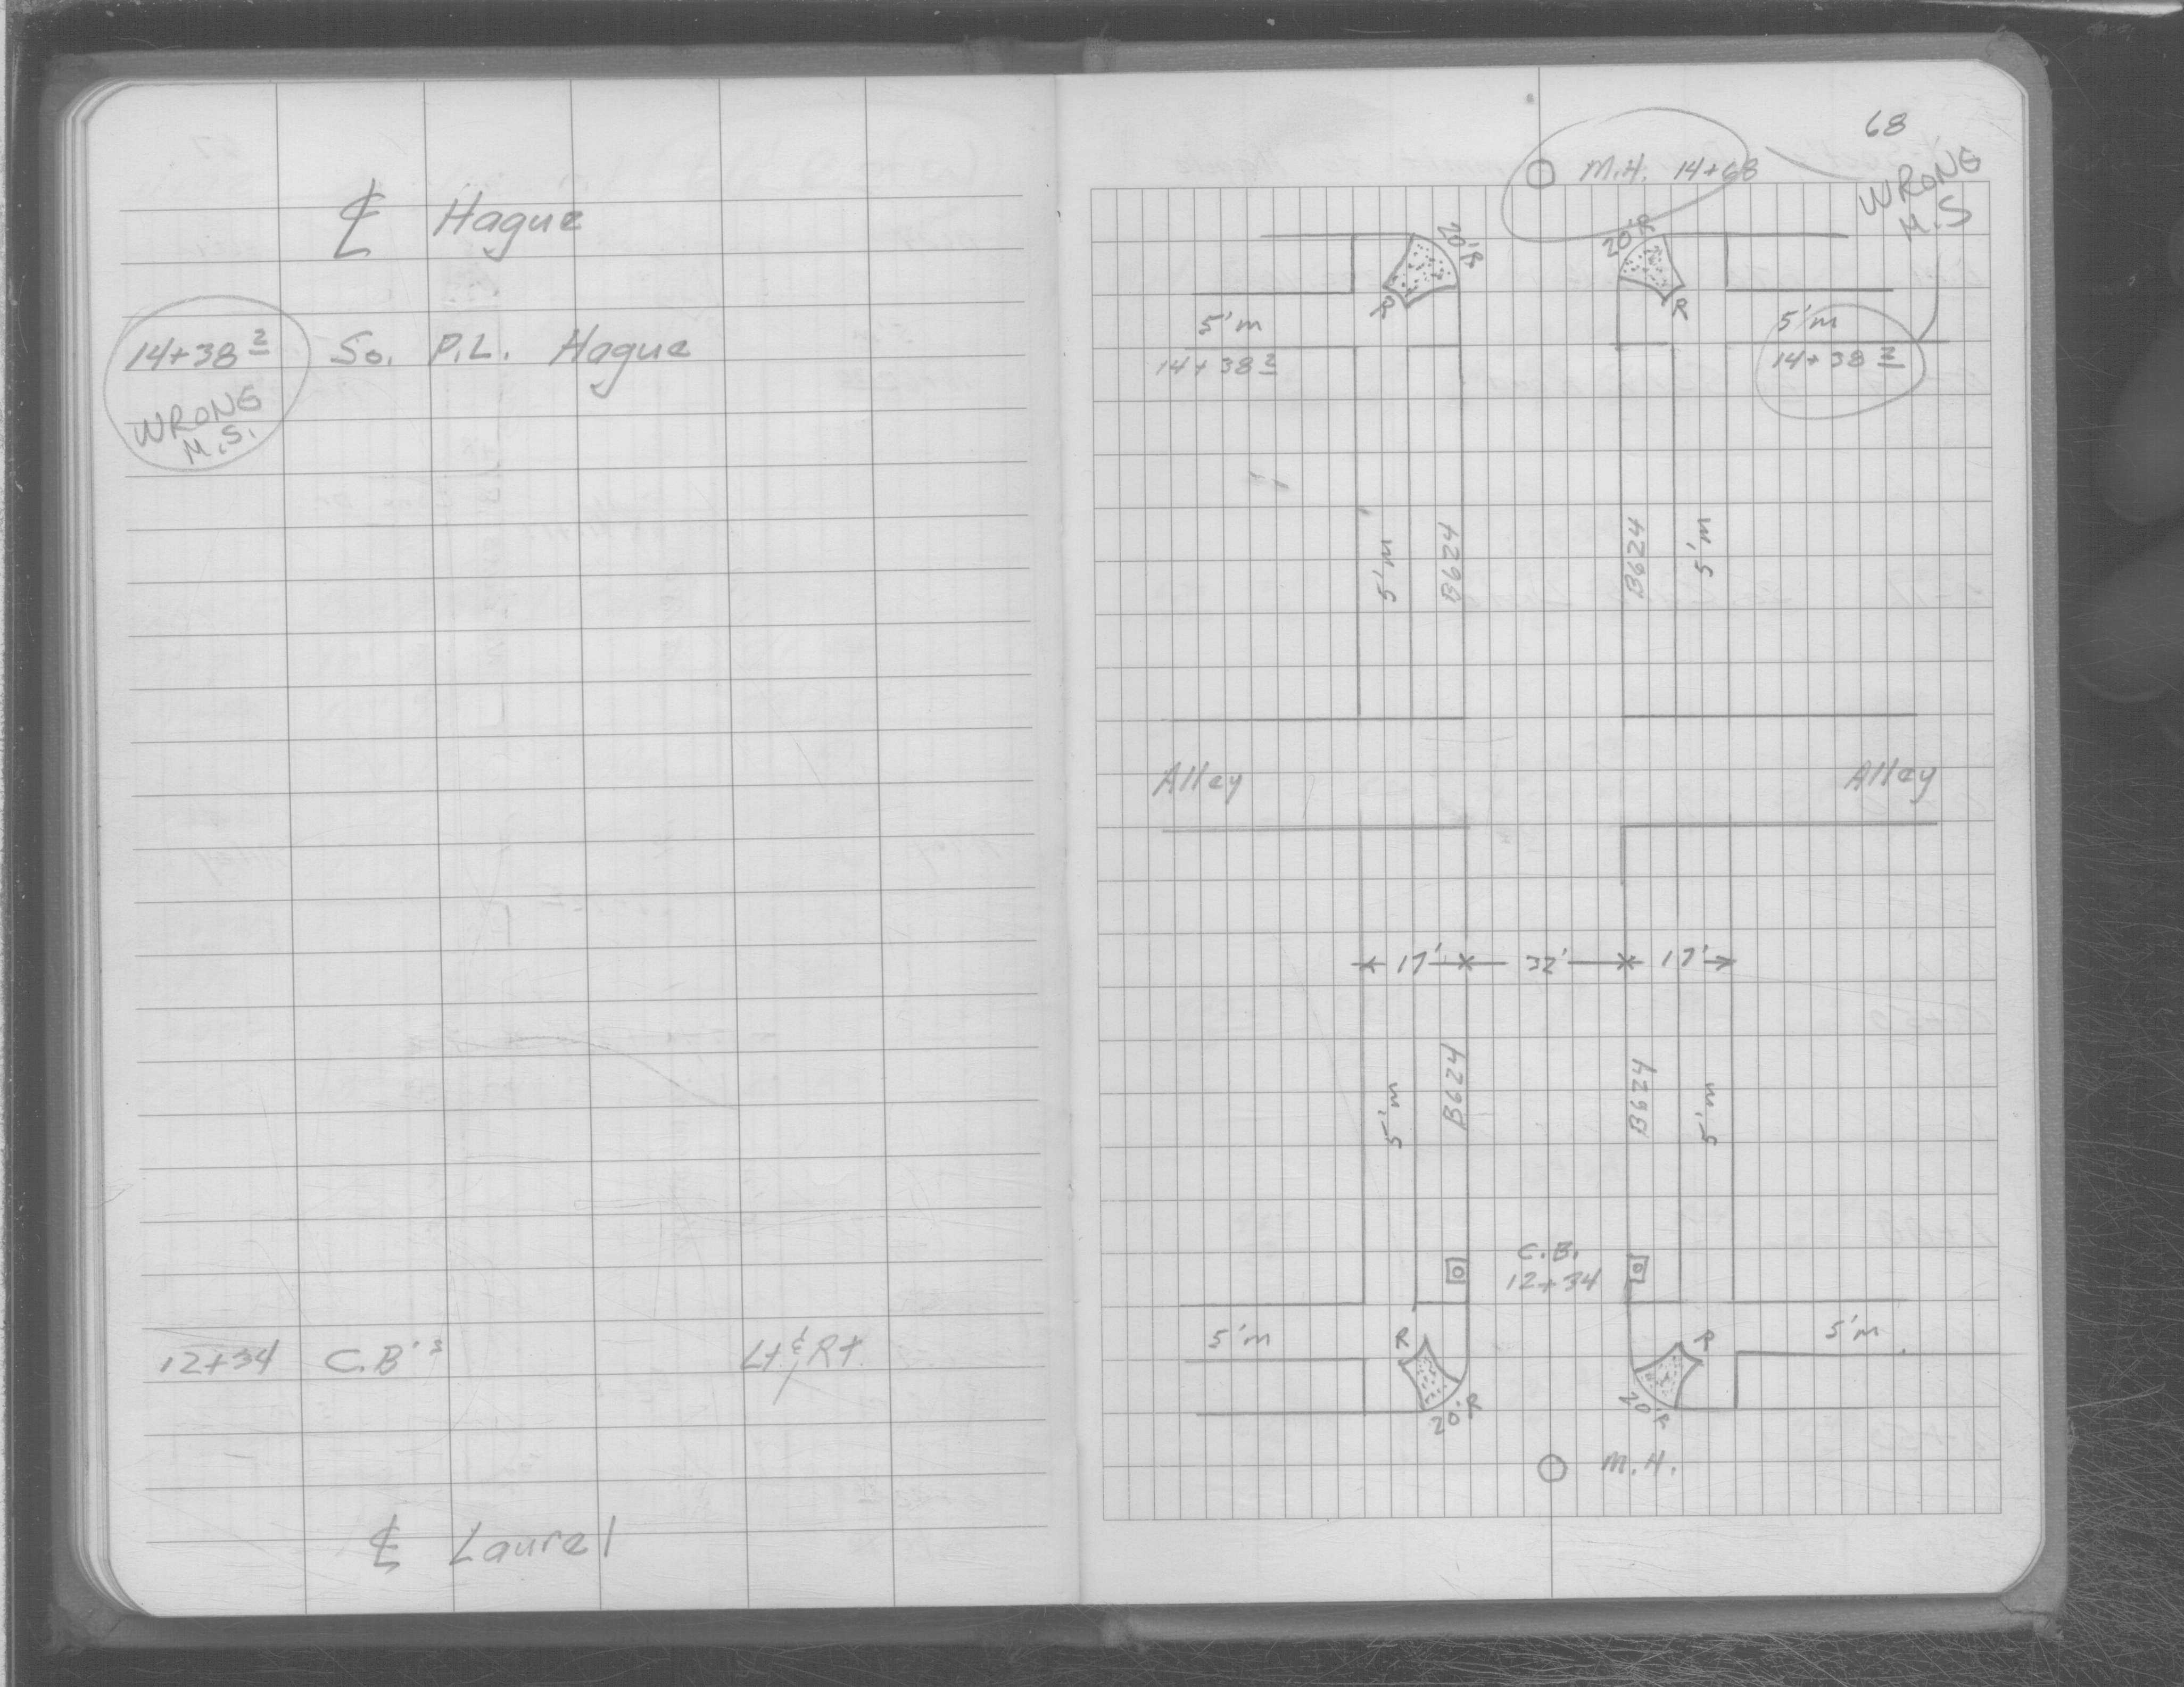 ℄ Hague
14+38 2 So. P.L. Hague
WRONG
M.S.
12+34 C.B's Lt & Rt.
℄ Laurel
68
M.H. 14+68
WRONG
M.S
20'R 20'R
R R
5'm 5'm
14+38 2 14+38 2
5'm B624 B624 5'm
Alley Alley
17' 32' 17'
5'm B624 B624 5'm
C.B.
12+34
5'm R R 5'm
20'R 20'R
M.H.